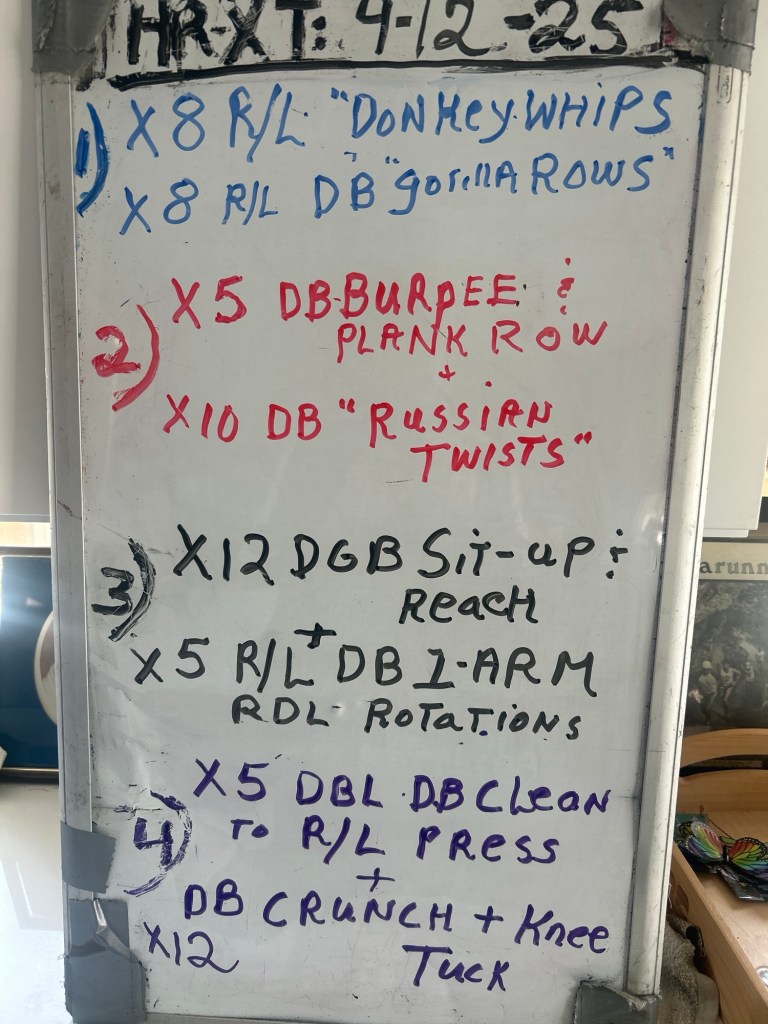 HR-XT: 4-12-25
1) X8 R/L "DONKEY WHIPS"
X8 R/L DB "gorillA ROWS"
2) X5 DB BURPEE &
PLANK ROW
+
X10 DB "RUSSIAN
TWISTS"
3) X12 DGB SIT-UP &
REACH
+
X5 R/L DB 1-ARM
RDL ROTATIONS
4) X5 DBL DB CLEAN
TO R/L PRESS
+
DB CRUNCH + Knee
X12 TUCK
arunn